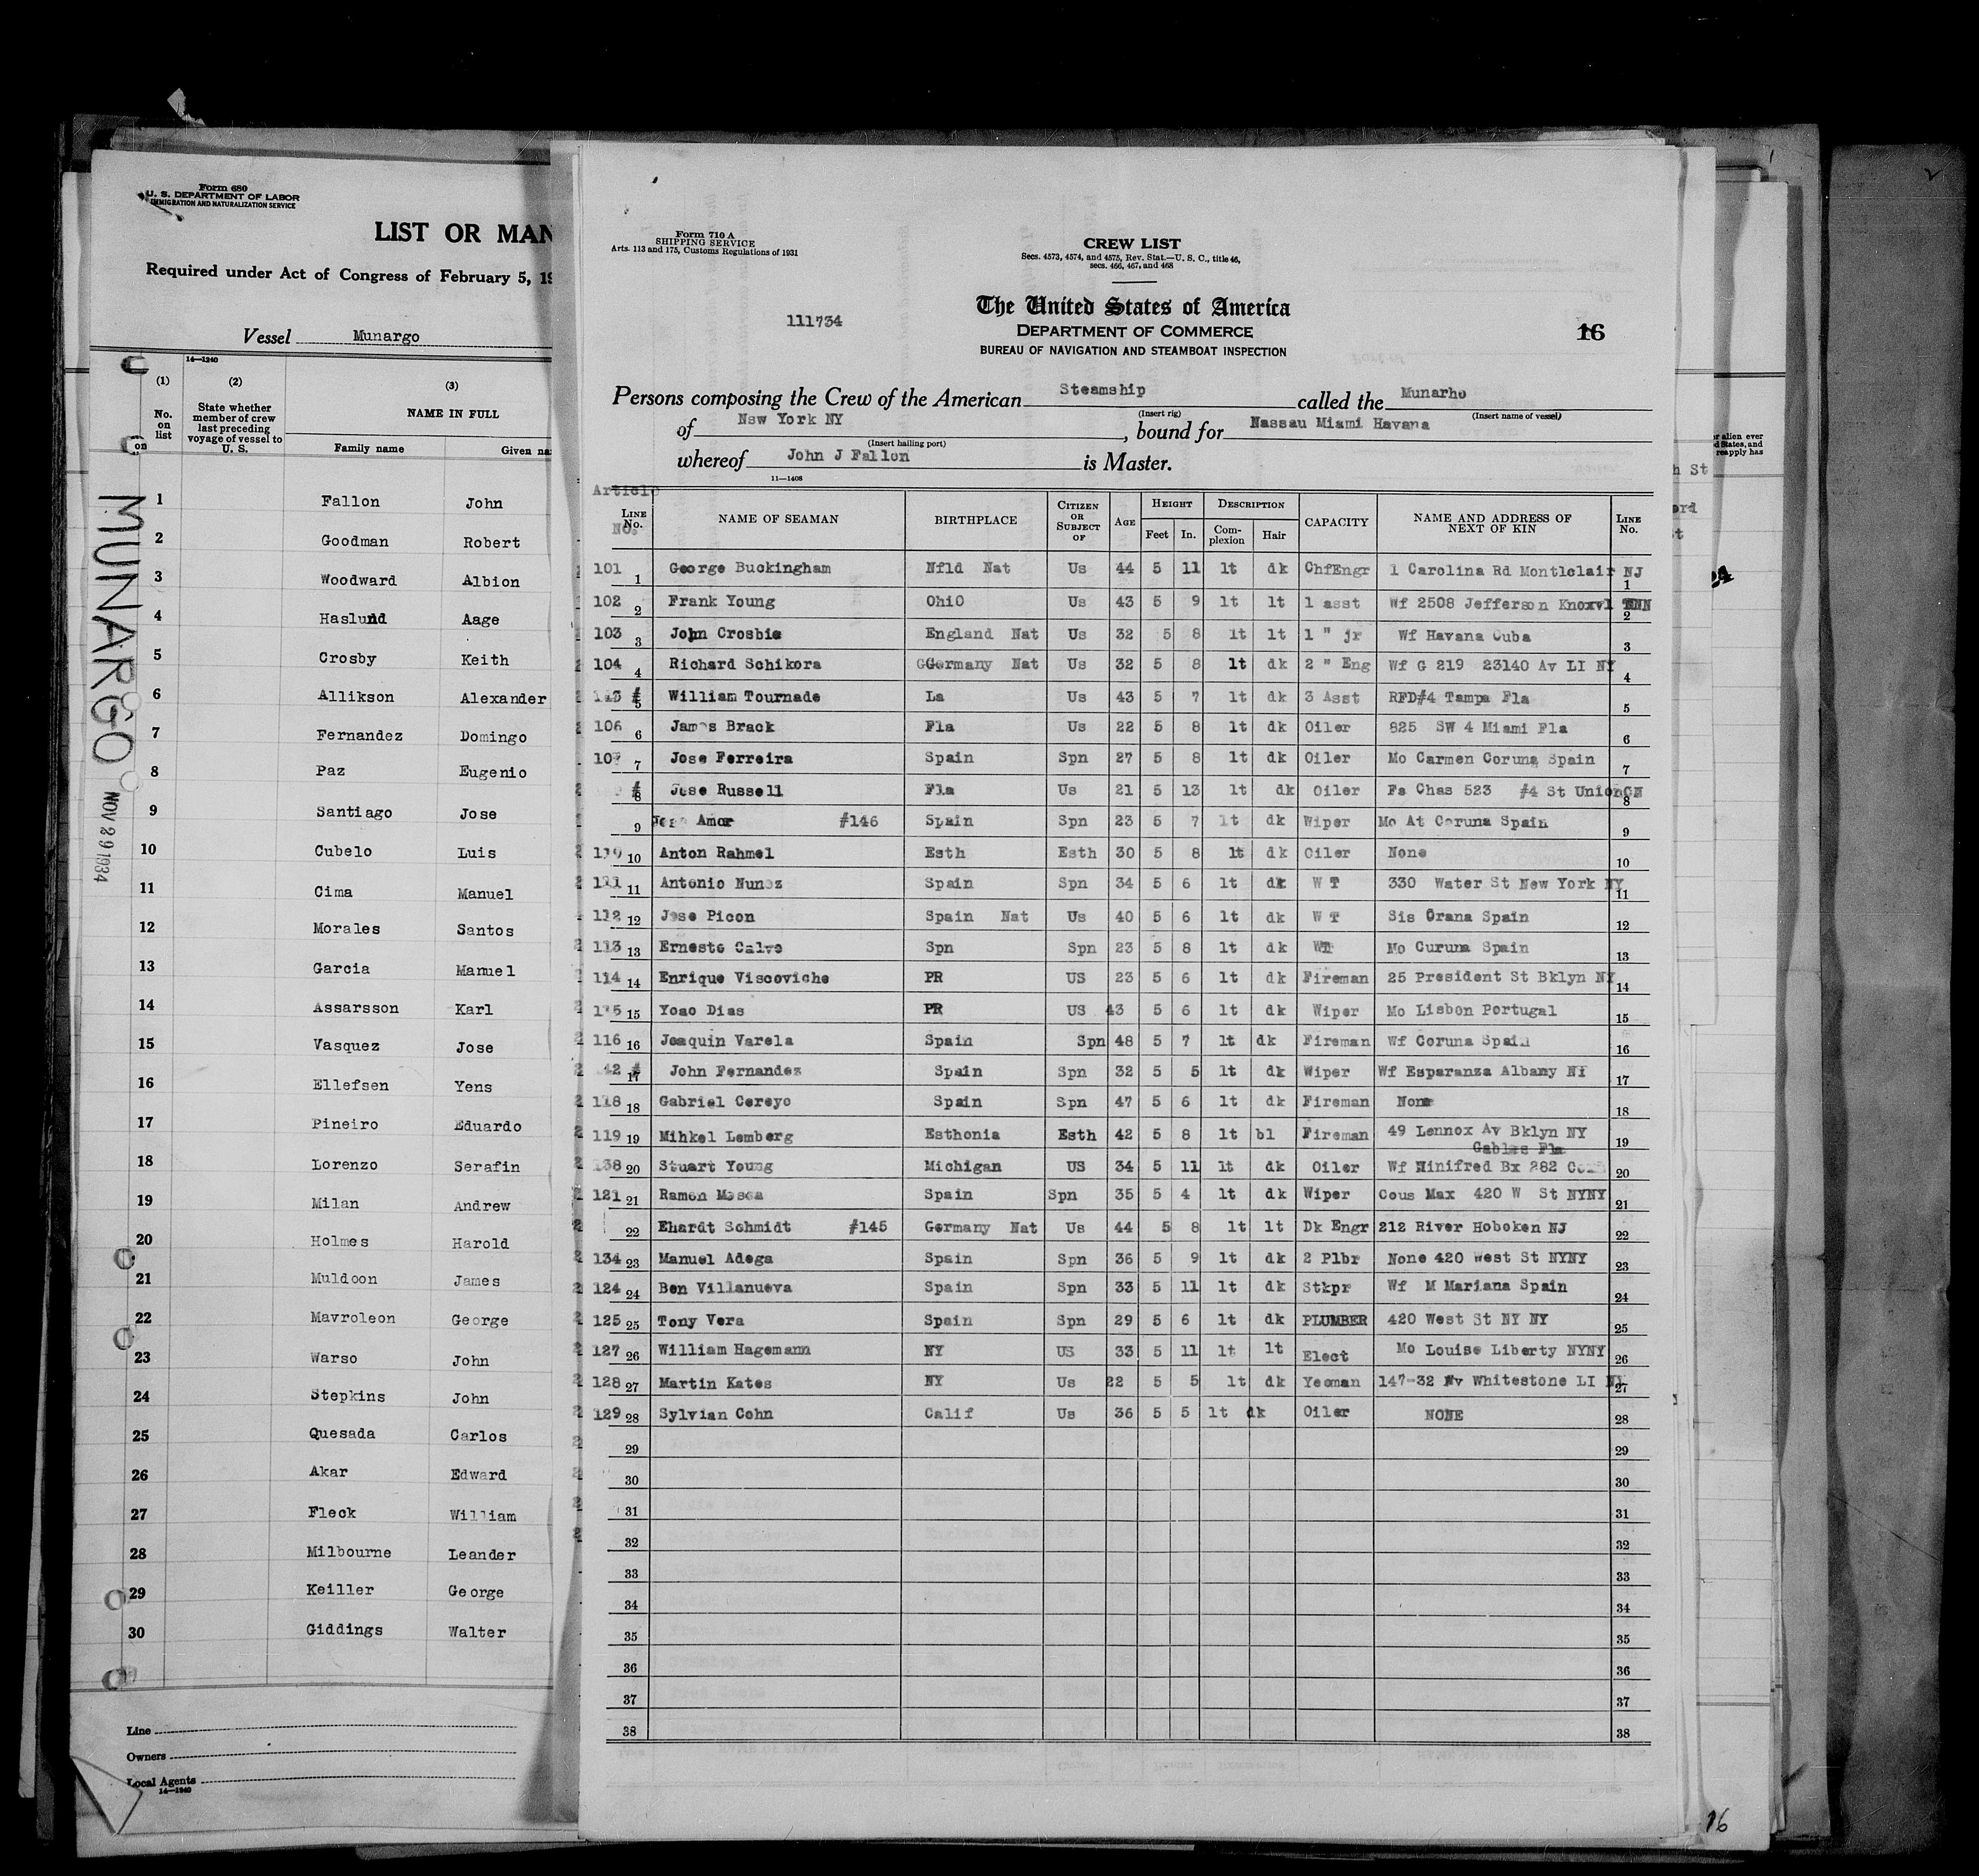 Form 680
U. S. DEPARTMENT OF LABOR
IMMIGRATION AND NATURALIZATION SERVICE
LIST OR MAN
Required under Act of Congress of February 5, 19
Vessel Munargo
14—1240
(1) (2) (3)
No. on list
State whether member of crew last preceding voyage of vessel to U. S.
NAME IN FULL
Family name Given na
1 Fallon John
2 Goodman Robert
3 Woodward Albion
4 Haslund Aage
5 Crosby Keith
6 Allikson Alexander
7 Fernandez Domingo
8 Paz Eugenio
9 Santiago Jose
10 Cubelo Luis
11 Cima Manuel
12 Morales Santos
13 Garcia Manuel
14 Assarsson Karl
15 Vasquez Jose
16 Ellefsen Yens
17 Pineiro Eduardo
18 Lorenzo Serafin
19 Milan Andrew
20 Holmes Harold
21 Muldoon James
22 Mavroleon George
23 Warso John
24 Stepkins John
25 Quesada Carlos
26 Akar Edward
27 Fleck William
28 Milbourne Leander
29 Keiller George
30 Giddings Walter
Line
Owners
Local Agents
14—1240
MUNARGO
NOV 29 1934
Form 710 A
SHIPPING SERVICE
Arts. 113 and 175, Customs Regulations of 1931
CREW LIST
Secs. 4573, 4574, and 4575, Rev. Stat.—U. S. C., title 46,
secs. 466, 467, and 468
The United States of America
DEPARTMENT OF COMMERCE
BUREAU OF NAVIGATION AND STEAMBOAT INSPECTION
111734
16
Persons composing the Crew of the American Steamship called the Munarho
(Insert rig) (Insert name of vessel)
of New York NY, bound for Nassau Miami Havana
(Insert hailing port)
whereof John J Fallon is Master.
11—1408
Article No.
LINE No. NAME OF SEAMAN BIRTHPLACE CITIZEN OR SUBJECT OF AGE HEIGHT Feet In. DESCRIPTION Complexion Hair CAPACITY NAME AND ADDRESS OF NEXT OF KIN LINE No.
101 1 George Buckingham Nfld Nat Us 44 5 11 lt dk ChfEngr 1 Carolina Rd Montlclair NJ 1
102 2 Frank Young OhiO Us 43 5 9 lt lt 1 asst Wf 2508 Jefferson Knoxvl 2
103 3 John Crosbie England Nat Us 32 5 8 lt lt 1 " jr Wf Havana Cuba 3
104 4 Richard Schikora GGermany Nat Us 32 5 8 lt dk 2 " Eng Wf G 219 23140 Av LI NY 4
5 William Tournade La Us 43 5 7 lt dk 3 Asst RFD#4 Tampa Fla 5
106 6 James Brack Fla Us 22 5 8 lt dk Oiler 825 SW 4 Miami Fla 6
107 7 Jose Ferreira Spain Spn 27 5 8 lt dk Oiler Mo Carmen Coruna Spain 7
8 Jose Russell Fla Us 21 5 13 lt dk Oiler Fa Chas 523 #4 St Union 8
9 Amor #146 Spain Spn 23 5 7 lt dk Wiper Mo At Coruna Spain 9
10 Anton Rahmel Esth Esth 30 5 8 lt dk Oiler None 10
111 11 Antonio Nunez Spain Spn 34 5 6 lt dk W T 330 Water St New York NY 11
112 12 Jose Picon Spain Nat Us 40 5 6 lt dk W T Sis Orana Spain 12
113 13 Ernesto Calvo Spn Spn 23 5 8 lt dk WT Mo Curuna Spain 13
114 14 Enrique Viscoviche PR US 23 5 6 lt dk Fireman 25 President St Bklyn NY 14
115 15 Yoao Dias PR US 43 5 6 lt dk Wiper Mo Lisbon Portugal 15
116 16 Joaquin Varela Spain Spn 48 5 7 lt dk Fireman Wf Coruna Spain 16
17 John Fernandez Spain Spn 32 5 5 lt dk Wiper Wf Esparanza Albany NY 17
118 18 Gabriel Cereyo Spain Spn 47 5 6 lt dk Fireman None 18
119 19 Mihkel Lemberg Esthonia Esth 42 5 8 lt bl Fireman 49 Lennox Av Bklyn NY 19
Gables Fla
138 20 Stuart Young Michigan US 34 5 11 lt dk Oiler Wf Winifred Bx 282 20
121 21 Ramon Mosca Spain Spn 35 5 4 lt dk Wiper Cous Max 420 W St NYNY 21
22 Ehardt Schmidt #145 Germany Nat Us 44 5 8 lt lt Dk Engr 212 River Hoboken NJ 22
134 23 Manuel Adega Spain Spn 36 5 9 lt dk 2 Plbr None 420 West St NYNY 23
124 24 Ben Villanueva Spain Spn 33 5 11 lt dk Stkpr Wf M Mariana Spain 24
125 25 Tony Vera Spain Spn 29 5 6 lt dk PLUMBER 420 West St NY NY 25
127 26 William Hagemann NY US 33 5 11 lt lt Elect Mo Louise Liberty NYNY 26
128 27 Martin Kates NY Us 22 5 5 lt dk Yeoman 147-32 Av Whitestone LI NY 27
129 28 Sylvian Cohn Calif Us 36 5 5 lt dk Oiler NONE 28
29 29
30 30
31 31
32 32
33 33
34 34
35 35
36 36
37 37
38 38
r alien ever
d States, and
reapply has
h St
ord
st
16